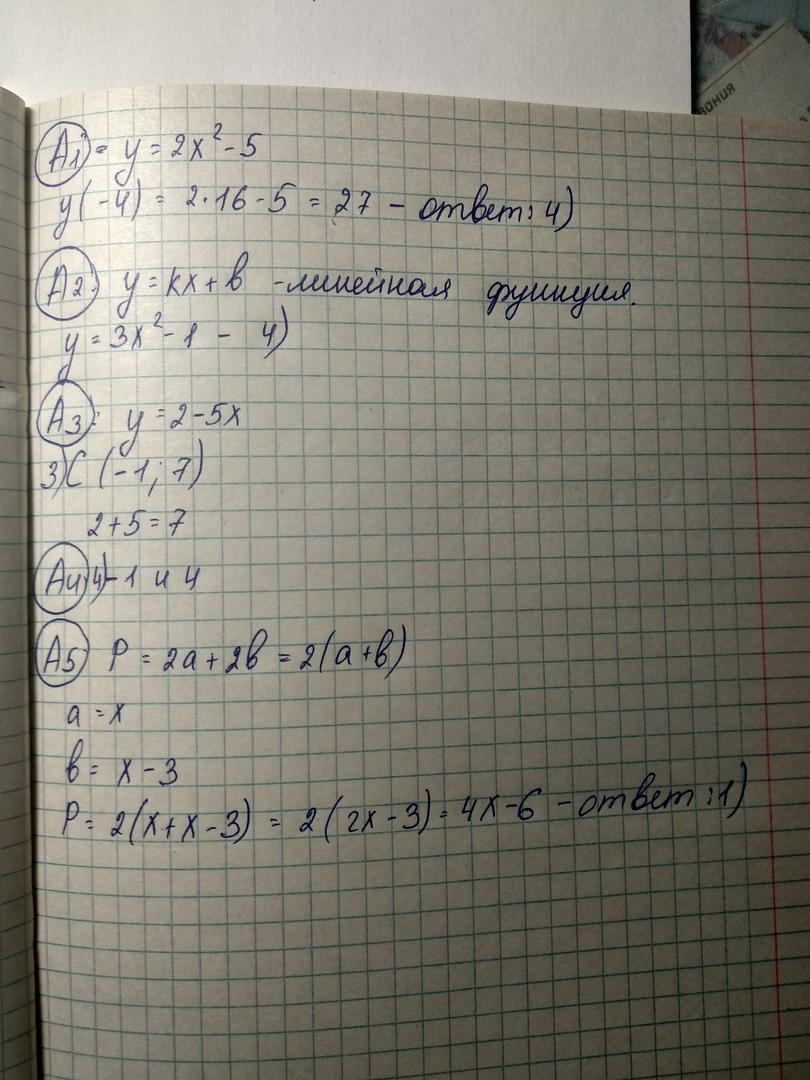 вания
А1 = y = 2x² - 5
y(-4) = 2·16 - 5 = 27 - ответ: 4)
А2: y = kx + b - линейная функция.
y = 3x² - 1 - 4)
А3: y = 2 - 5x
3) С (-1; 7)
2 + 5 = 7
А4 4) -1 и 4
А5 P = 2a + 2b = 2(a + b)
a = x
b = x - 3
P = 2(x + x - 3) = 2(2x - 3) = 4x - 6 - ответ: 1)